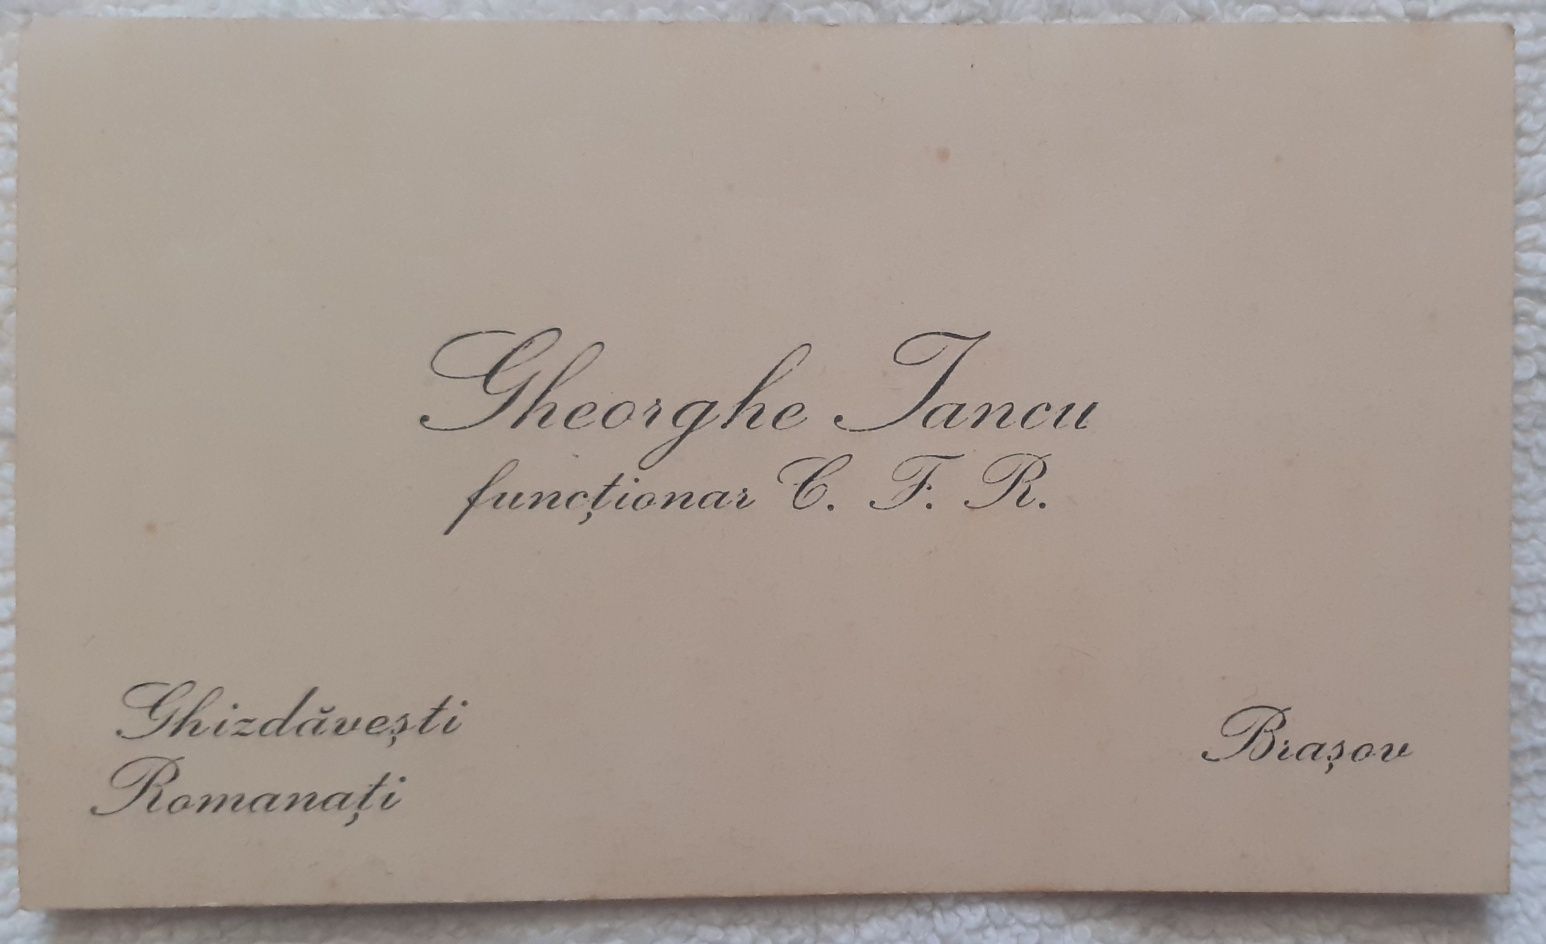 Gheorghe Iancu
funcționar C. F. R.
Ghizdăvești
Romanați
Brașov